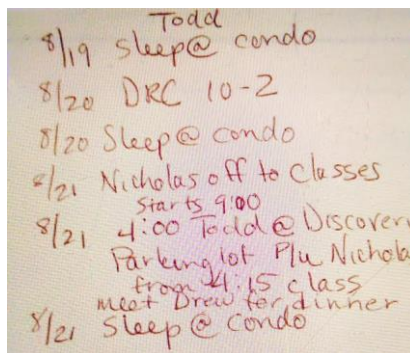 Todd
8/19 Sleep@ condo
8/20 DRC 10-2
8/20 Sleep@ condo
8/21 Nicholas off to classes
Starts 9:00
8/21 4:00 Todd @ Discover
Parking lot P/u Nichola
from 4:15 class
meet Drew for dinner
8/21 Sleep @ condo